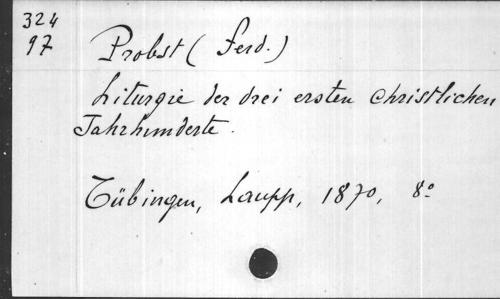 324
97
Probst (Ferd.)
Liturgie der drei ersten christlichen
Jahrhunderte.
Tübingen, Laupp, 1870, 8°